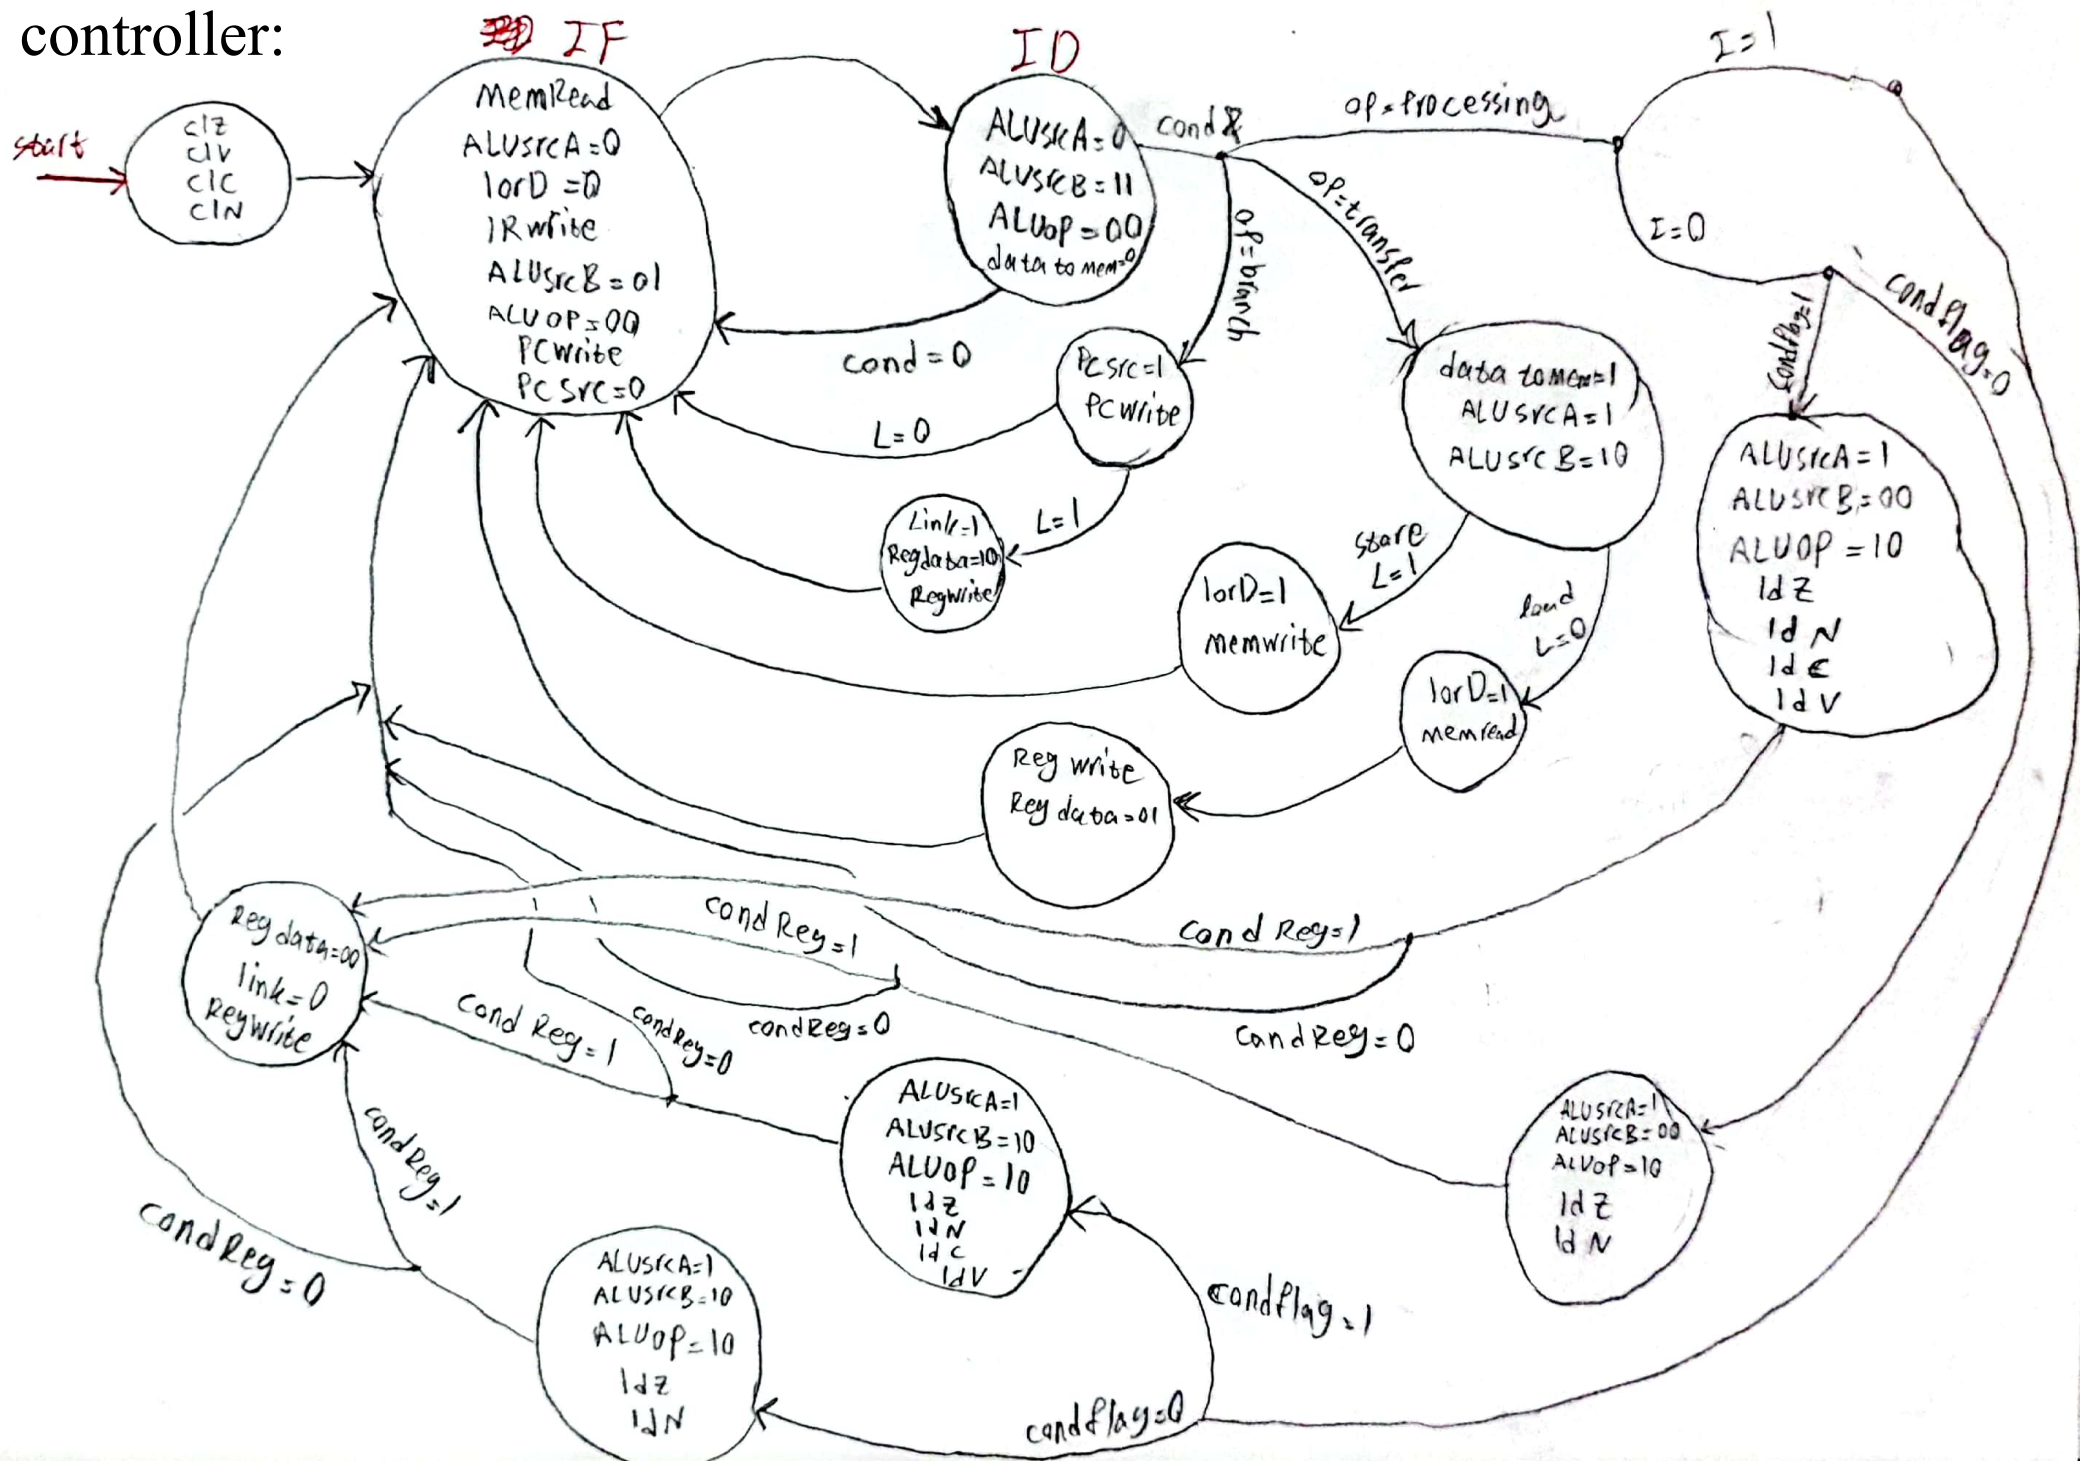 controller:
IF
ID
I=1
start
clz
clv
clC
clN
MemRead
ALUsrcA=0
IorD =0
IRwrite
ALUsrcB=01
ALUOP=00
PCwrite
PCSrc=0
ALUsrcA=0
ALUsrcB=11
ALUOP=00
datatomem=0
cond
op=Processing
op=transfer
op=branch
I=0
condflag=1
condflag=0
cond=0
PCSrc=1
PCwrite
L=0
L=1
Link=1
Regdata=10
Regwrite
datatomem=1
ALUsrcA=1
ALUsrcB=10
store
L=1
load
L=0
IorD=1
memwrite
IorD=1
memread
Reg write
Reg data=01
ALUsrcA=1
ALUsrcB=00
ALUOP=10
ldZ
ldN
ldC
ldV
Reg data=00
link=0
Regwrite
condReg=1
cond Reg=1
cond Reg=1
condReg=0
condReg=0
condReg=0
condReg=1
condReg=0
ALUsrcA=1
ALUsrcB=10
ALUOP=10
ldZ
ldN
ldC
ldV
ALUsrcA=1
ALUsrcB=00
ALUOP=10
ldZ
ldN
ALUsrcA=1
ALUsrcB=10
ALUOP=10
ldZ
ldN
condflag=1
condflag=0